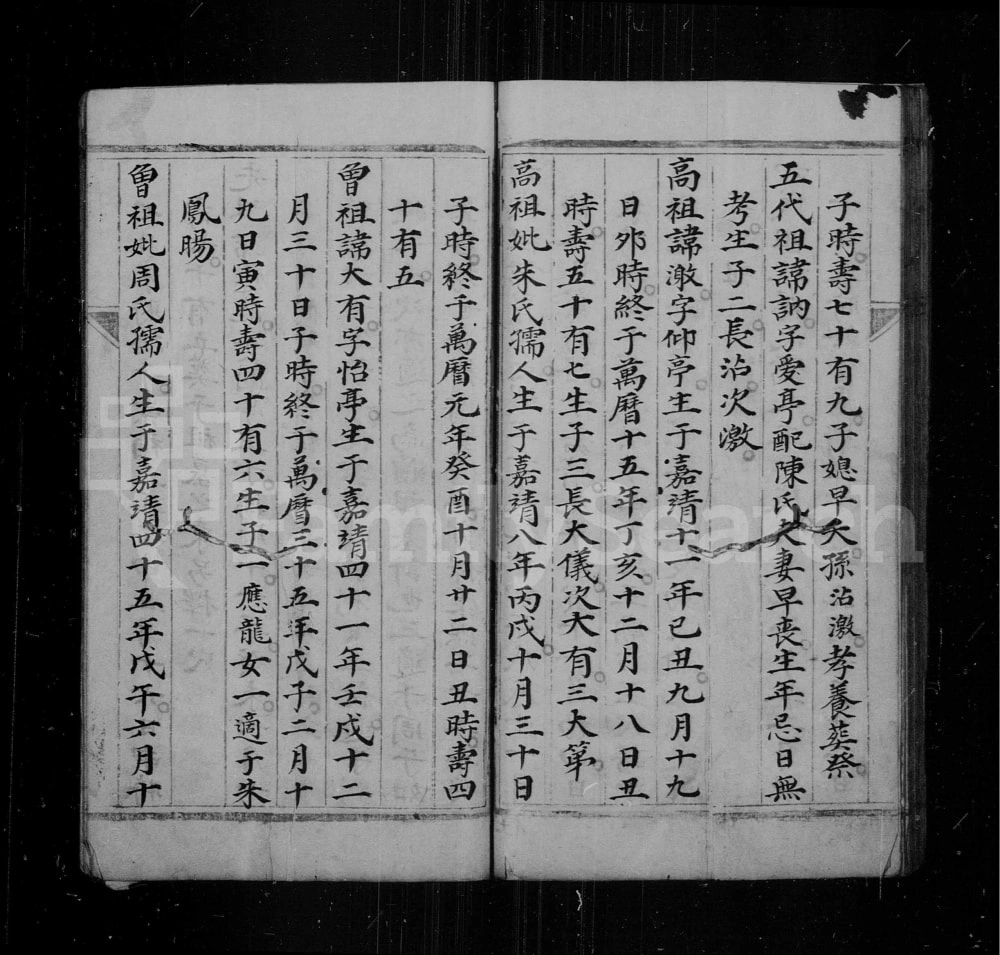 子時壽七十有九子媳早夭孫治激孝養葬祭
五代祖諱訥字愛亭配陳氏夫妻早喪生年忌日無
考生子二長治次激
高祖諱激字仰亭生于嘉靖十一年已丑九月十九
日夘時終于萬曆十五年丁亥十二月十八日丑
時壽五十有七生子三長大儀次大有三大第
高祖妣朱氏孺人生于嘉靖八年丙戌十月三十日
子時終于萬曆元年癸酉十月廿二日丑時壽四
十有五
曾祖諱大有字怡亭生于嘉靖四十一年壬戌十二
月三十日子時終于萬曆三十五年戊子二月十
九日寅時壽四十有六生子一應龍女一適于朱
鳳暘
曾祖妣周氏孺人生于嘉靖四十五年戊午六月十
FamilySearch